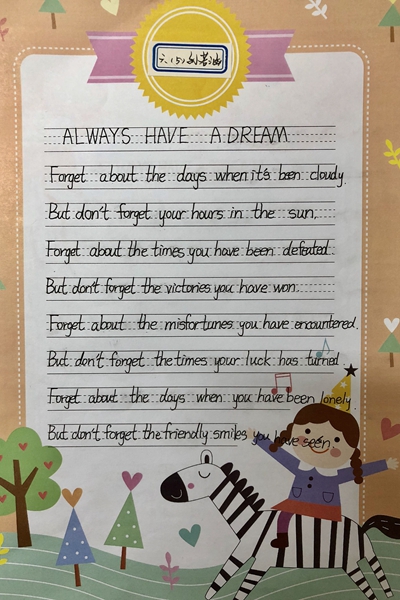 六、(5) 刘
ALWAYS HAVE A DREAM
Forget about the days when it's been cloudy.
But don't forget your hours in the sun.
Forget about the times you have been defeated.
But don't forget the victories you have won.
Forget about the misfortunes you have encountered.
But don't forget the times your luck has turned.
Forget about the days when you have been lonely.
But don't forget the friendly smiles you have seen.